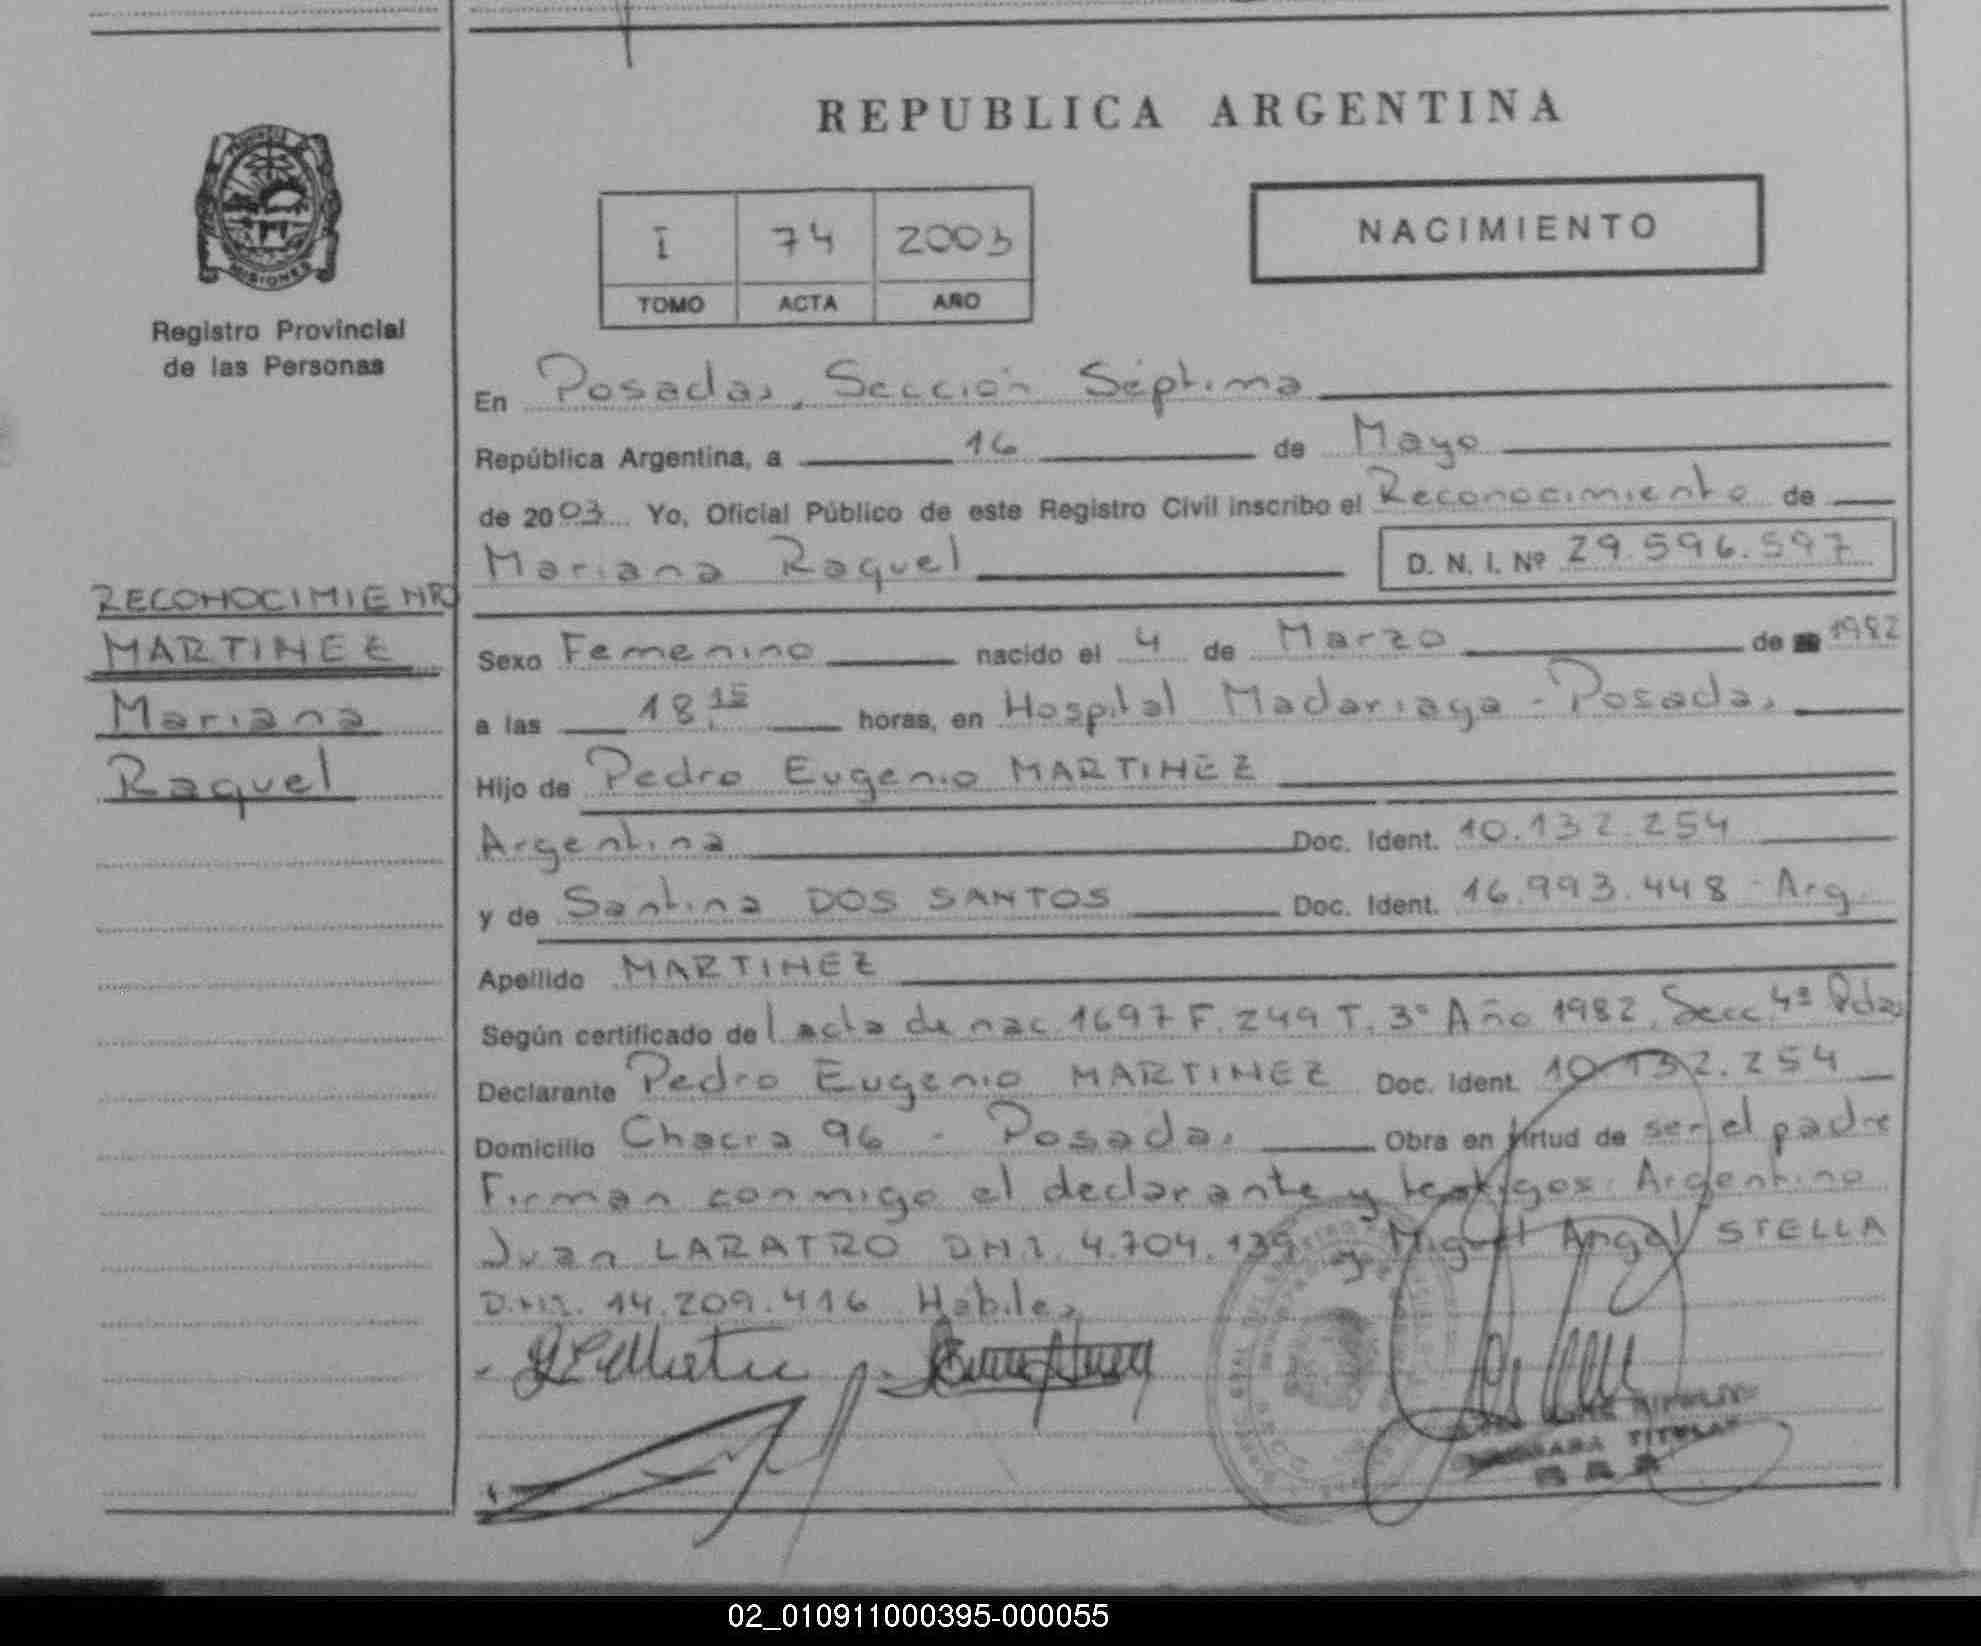 REPUBLICA ARGENTINA
PROVINCIA DE
MISIONES
Registro Provincial
de las Personas
I 74 2003
TOMO ACTA AÑO
NACIMIENTO
En Posadas, Sección Séptima
República Argentina, a 16 de Mayo
de 2003 Yo, Oficial Público de este Registro Civil inscribo el Reconocimiento de
Mariana Raquel D. N. I. Nº 29.596.597
RECONOCIMIENTO
MARTINEZ
Mariana
Raquel
Sexo Femenino nacido el 4 de Marzo de 1982
a las 18.15 horas, en Hospital Madariaga - Posadas
Hijo de Pedro Eugenio MARTINEZ
Argentina Doc. Ident. 10.132.254
y de Santina DOS SANTOS Doc. Ident. 16.993.448 - Arg.
Apellido MARTINEZ
Según certificado del acta de nac. 1697 F. 249 T. 3º Año 1982, Secc 4ª Pdas
Declarante Pedro Eugenio MARTINEZ Doc. Ident. 10.132.254
Domicilio Chacra 96 - Posadas Obra en virtud de ser el padre
Firman conmigo el declarante y testigos: Argentino
Juan LARATRO D.N.I. 4.704.139 y Miguel Angel STELLA
D.N.I. 14.209.416 Habiles
TITULAR
02_010911000395-000055